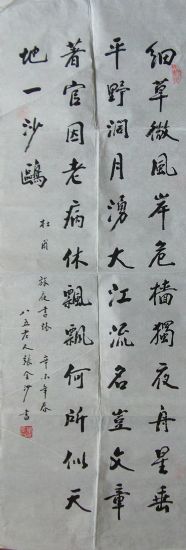 細草微風岸危檣獨夜舟星垂
平野闊月湧大江流名豈文章
著官因老病休飄飄何所似天
地一沙鷗
杜甫 旅夜書懷 辛未年春
八五老人張全沙書